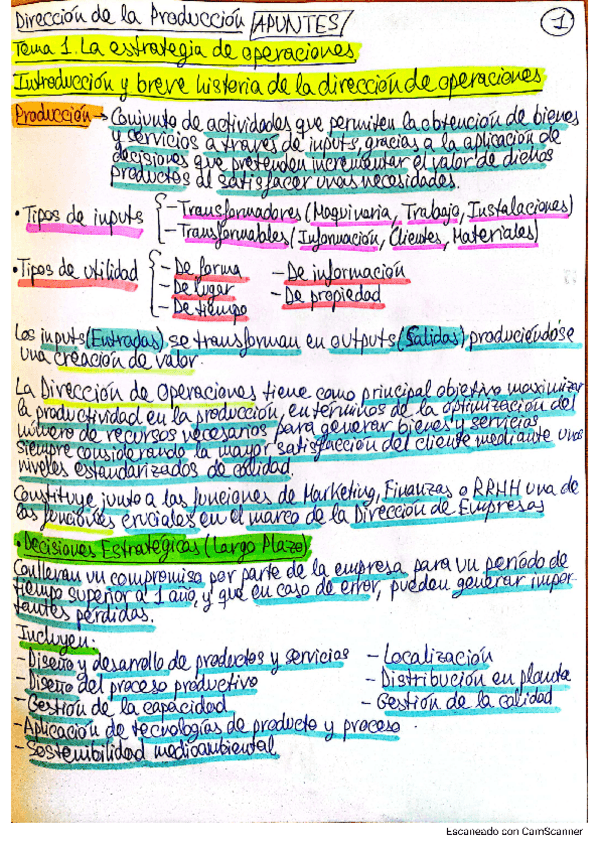 Dirección de la Producción APUNTES
1
Tema 1. La estrategia de operaciones
Introducción y breve historia de la dirección de operaciones
Producción → Conjunto de actividades que permiten la obtención de bienes
y servicios a través de inputs, gracias a la aplicación de
decisiones que pretenden incrementar el valor de dichos
productos al satisfacer unas necesidades.
• Tipos de inputs { - Transformadores (Maquinaria, Trabajo, Instalaciones)
- Transformables, (Información, Clientes, Materiales)
• Tipos de utilidad { - De forma - De información
- De lugar - De propiedad
- De tiempo
Los inputs (Entradas), se transforman en outputs (Salidas) produciéndose
una creación de valor.
La Dirección de Operaciones tiene como principal objetivo maximizar
la productividad en la producción, en términos de la optimización del
número de recursos necesarios para generar bienes y servicios
siempre considerando la mayor satisfacción del cliente mediante unos
niveles estandarizados de calidad.
Constituye junto a las funciones de Marketing, Finanzas o RRHH una de
las funciones cruciales en el marco de la Dirección de Empresas
• Decisiones Estratégicas (Largo Plazo)
Conllevan un compromiso por parte de la empresa para un período de
tiempo superior a 1 año, y que en caso de error, pueden generar impor-
tantes pérdidas.
Incluyen:
- Diseño y desarrollo de productos y servicios - Localización
- Diseño del proceso productivo - Distribución en planta
- Gestión de la capacidad - Gestión de la calidad
- Aplicación de tecnologías de producto y proceso
- Sostenibilidad medioambiental
Escaneado con CamScanner